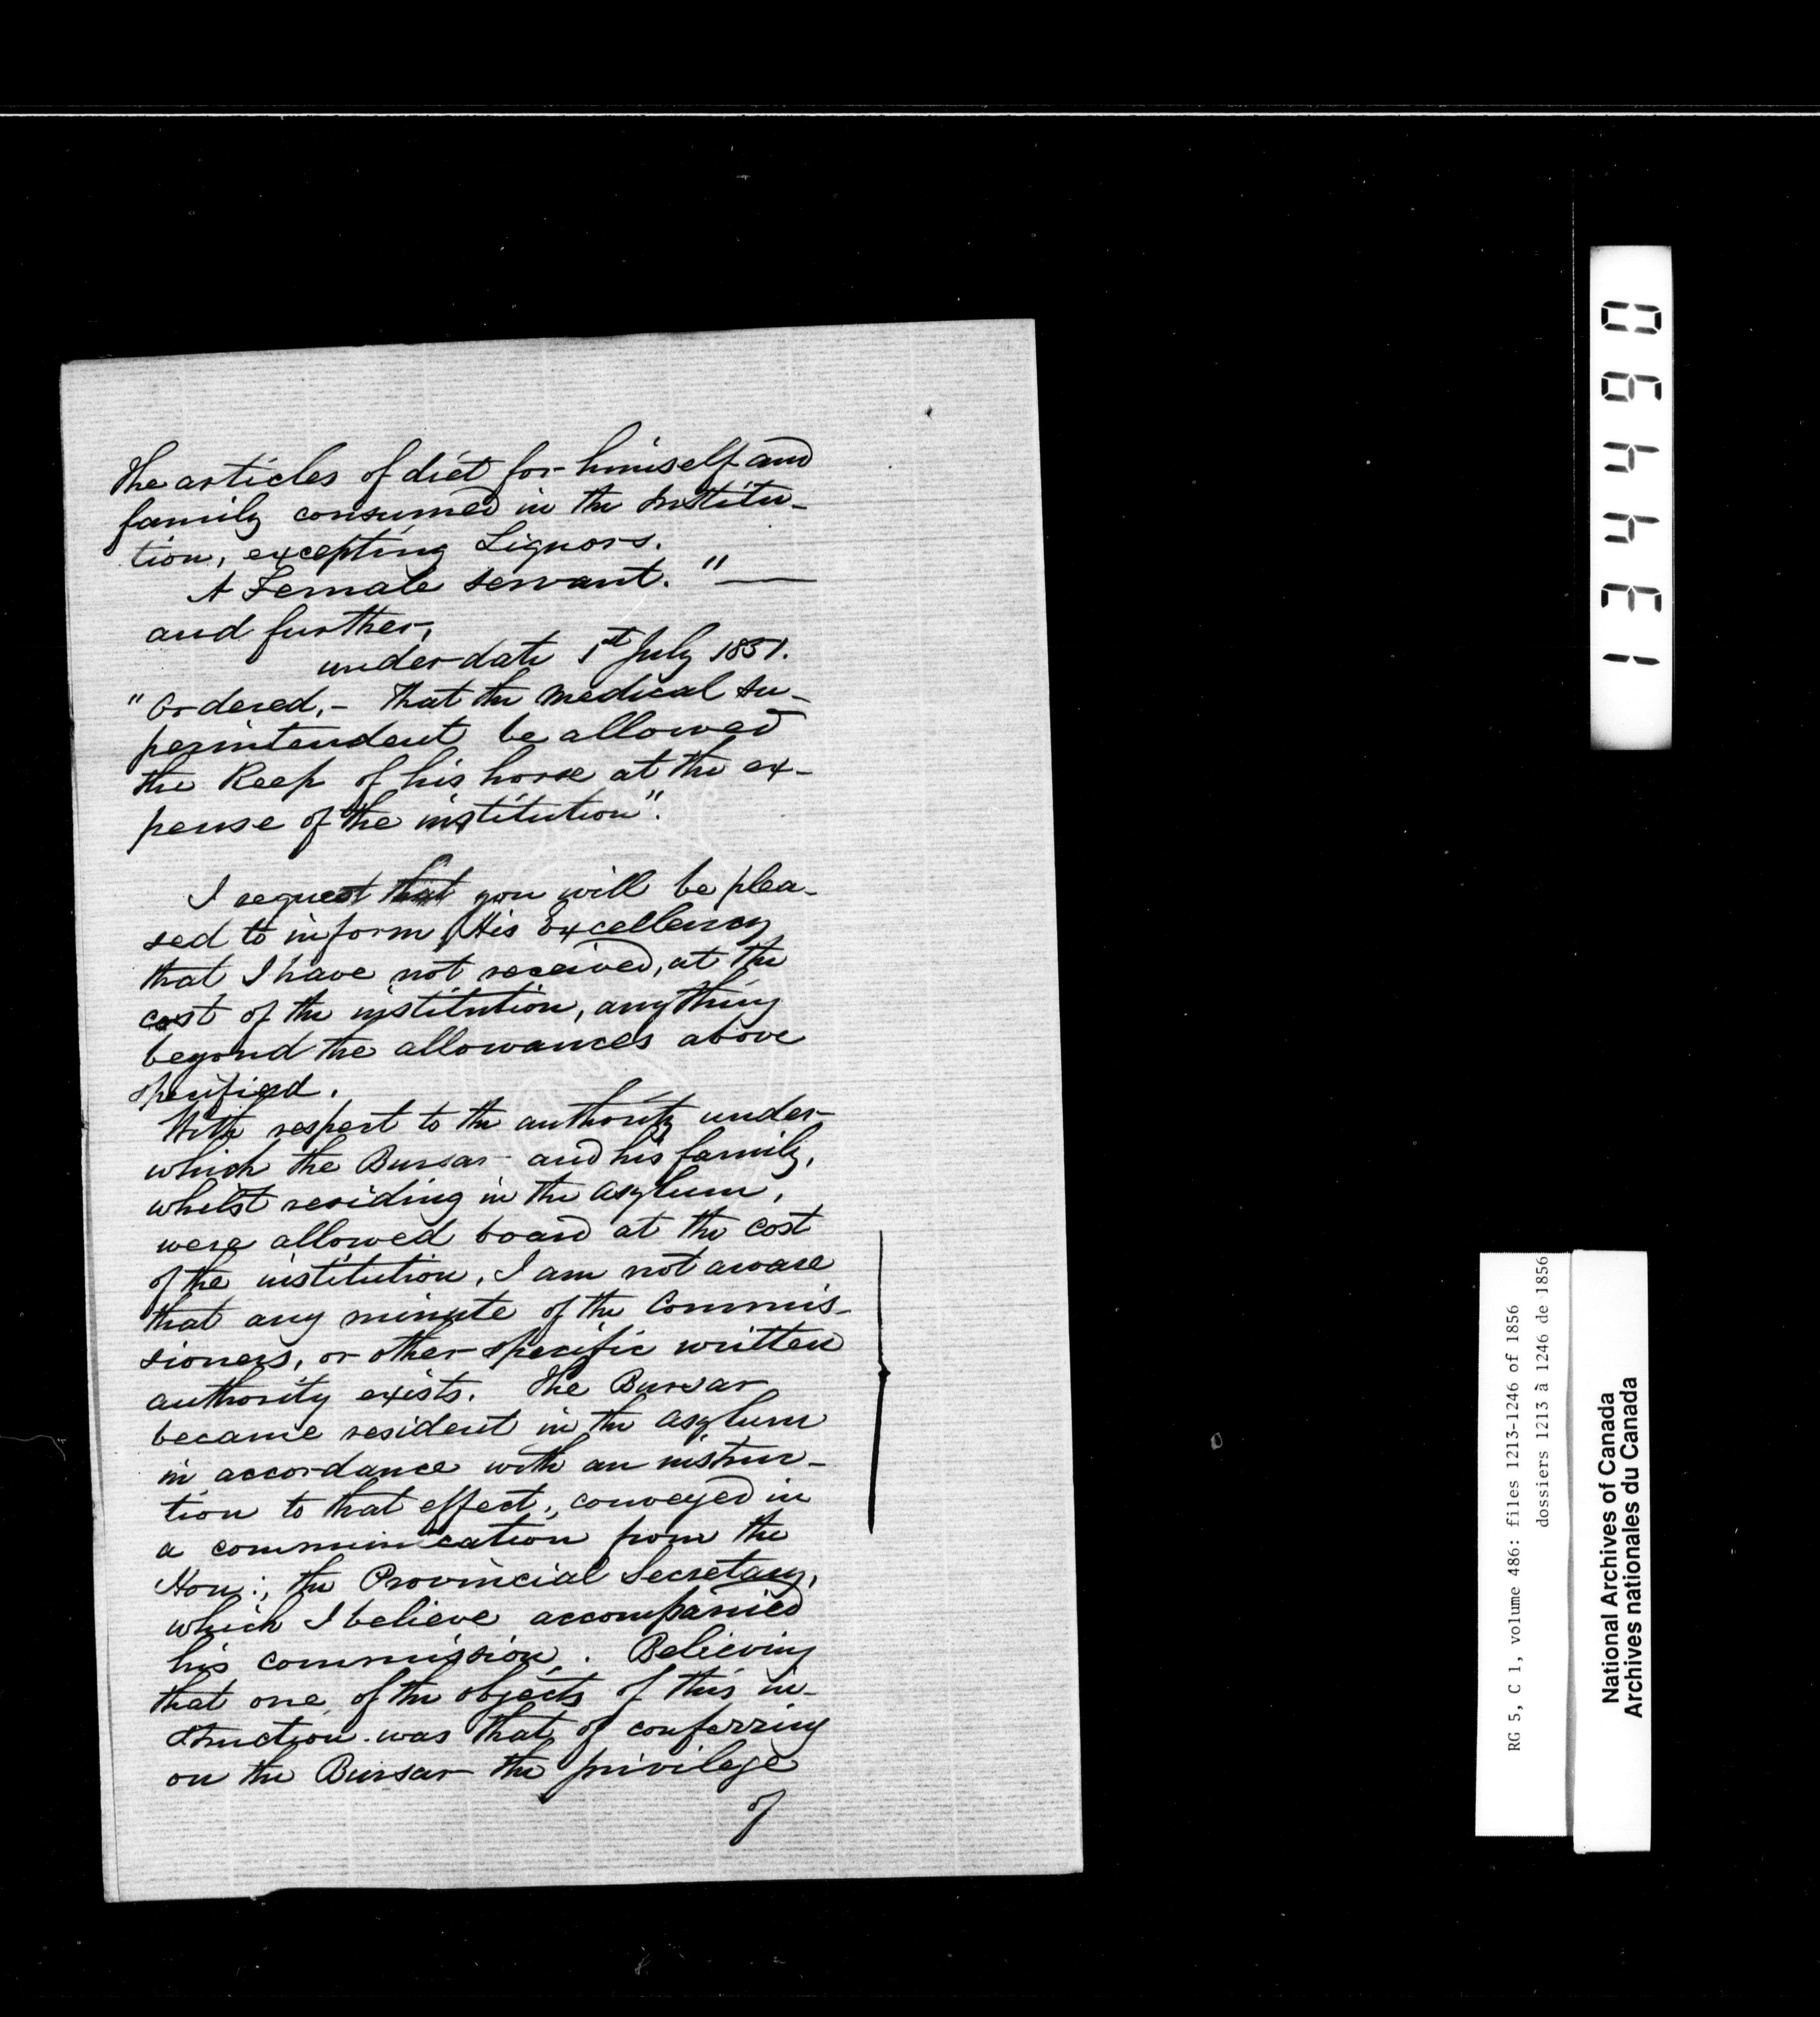 the articles of diet for himself and
family consumed in the Institu-
tion, excepting Liquors.
A Female servant. " —
and further,
under date 1st July 1851.
"Ordered, - That the Medical Su-
perintendent be allowed
the Keep of his horse at the ex-
pense of the institution".
I request that you will be plea-
sed to inform His Excellency
that I have not received, at the
cost of the institution, anything
beyond the allowances above
specified.
With respect to the authority under
which the Bursar and his family,
whilst residing in the Asylum,
were allowed board at the cost
of the institution, I am not aware
that any minute of the Commis-
sioners, or other specific written
authority exists. The Bursar
became resident in the Asylum
in accordance with an instruc-
tion to that effect, conveyed in
a communication from the
Hon:, the Provincial Secretary,
which I believe accompanied
his commission. Believing
that one of the objects of this in-
struction was that of conferring
on the Bursar the privilege
of
134490
RG 5, C 1, volume 486: files 1213-1246 of 1856
dossiers 1213 à 1246 de 1856
National Archives of Canada
Archives nationales du Canada